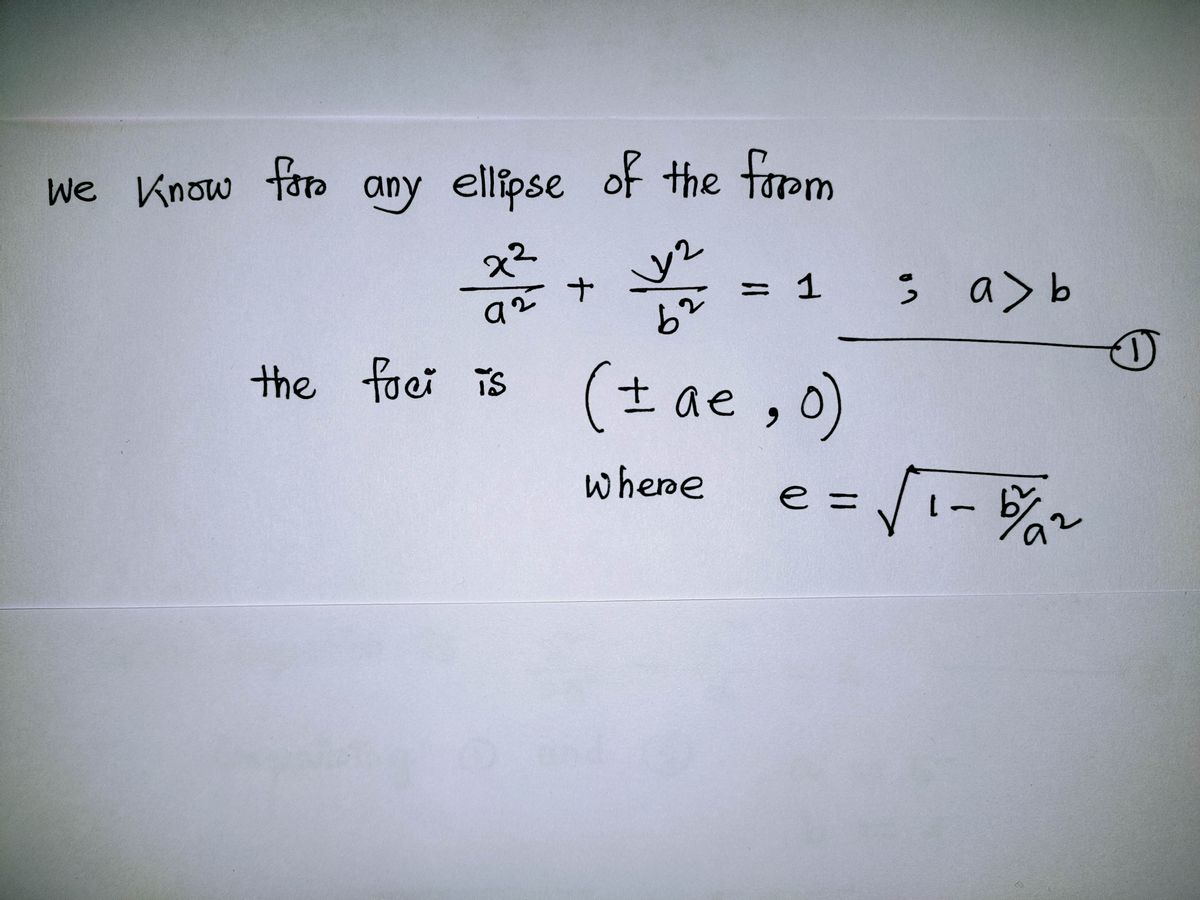 We know for any ellipse of the form
x²/a² + y²/b² = 1 ; a > b
①
the foci is (± ae , 0)
where e = √(1 - b²/a²)